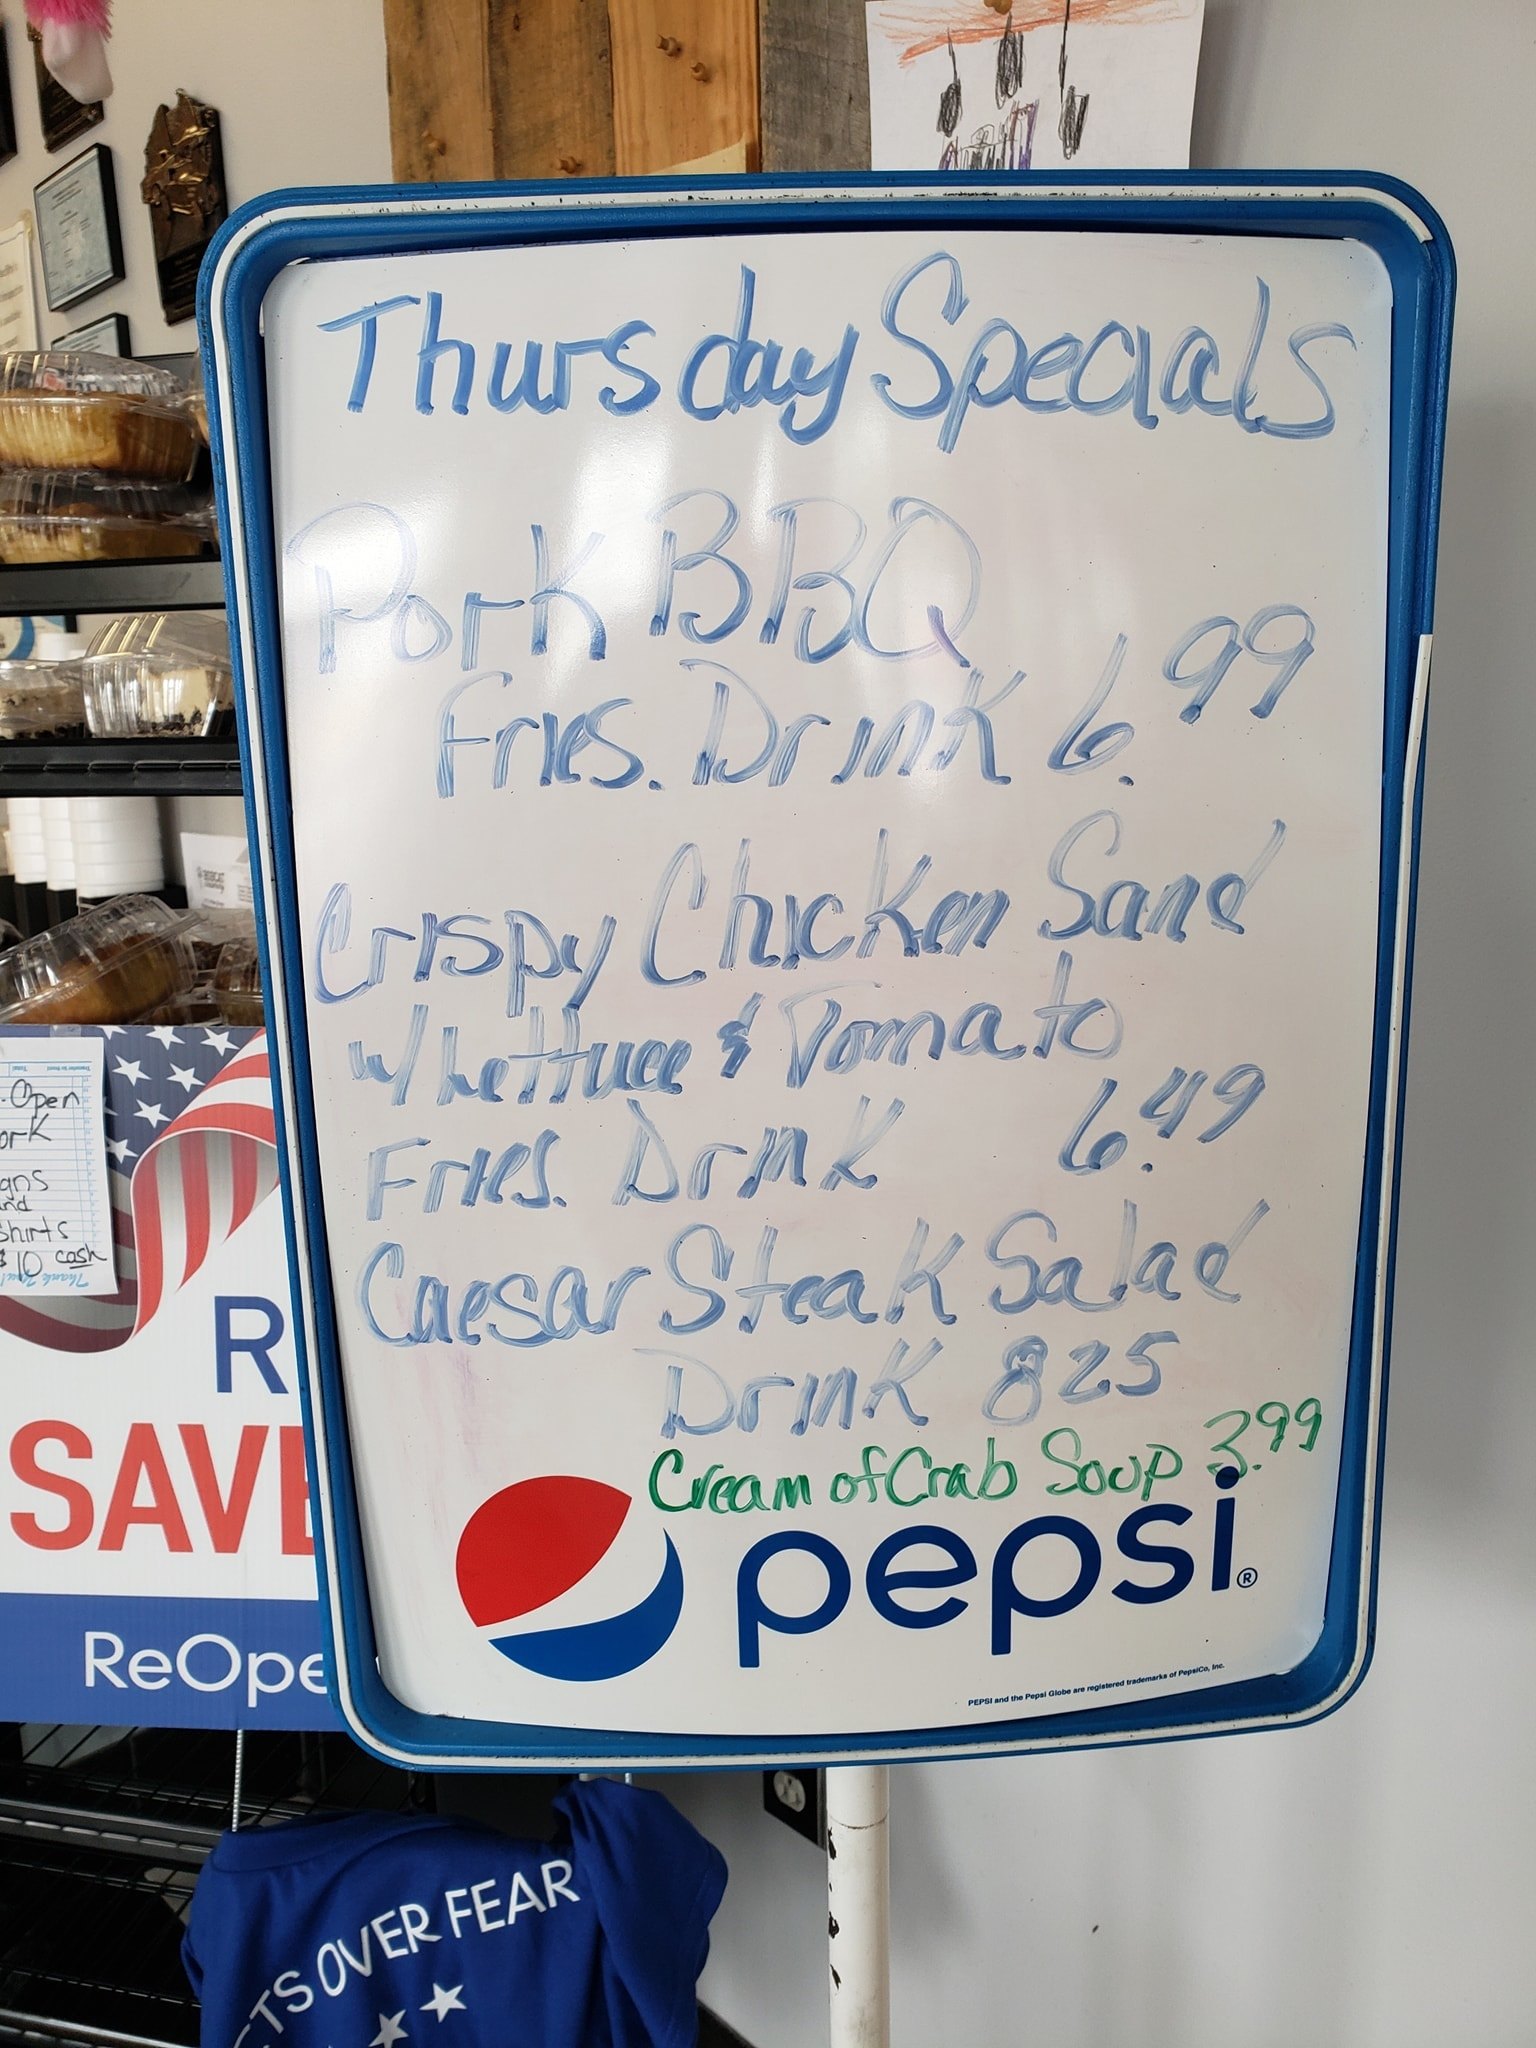 Thursday Specials
Pork BBQ
Fries. Drink 6.99
Crispy Chicken Sand
w/ Lettuce & Tomato
Fries. Drink 6.49
Caesar Steak Salad
Drink 825
Cream of Crab Soup 3.99
pepsi®
PEPSI and the Pepsi Globe are registered trademarks of PepsiCo, Inc.
Open
ork
gns
and
Shirts
$10 cash
Thank You!
R
SAVE
ReOpe
TS OVER FEAR